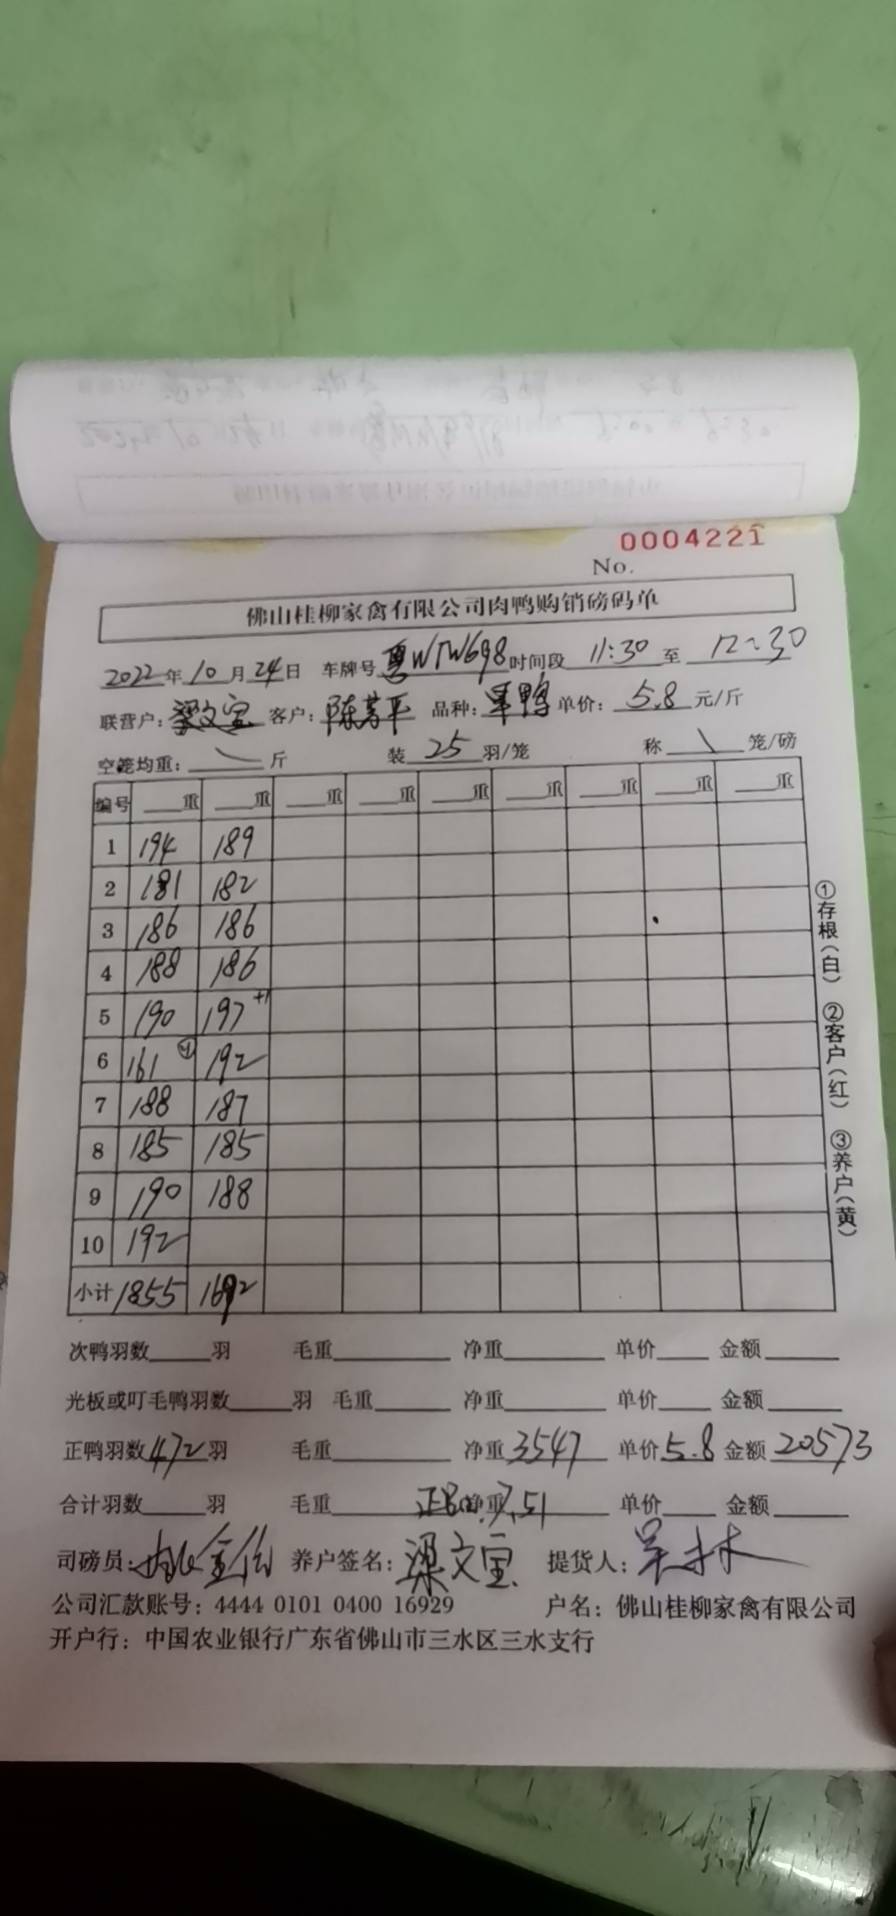 0004221
No.
佛山桂柳家禽有限公司肉鸭购销磅码单
2022年10月24日 车牌号粤WTW698时间段 11:30 至 12:30
联营户:梁文宝 客户:陈芳平 品种:单鸭 单价: 5.8 元/斤
空笼均重: \ 斤 装 25 羽/笼 称 \ 笼/磅
编号 重 重 重 重 重 重 重 重 重
1 194 189
2 181 182
3 186 186
4 188 186
5 190 197 +1
6 161 192
7 188 187
8 185 185
9 190 188
10 192
小计 1855 1692
①存根(白) ②客户(红) ③养户(黄)
次鸭羽数 羽 毛重 净重 单价 金额
光板或叮毛鸭羽数 羽 毛重 净重 单价 金额
正鸭羽数 472 羽 毛重 净重 3547 单价 5.8 金额 20573
合计羽数 羽 毛重 净重 7.51 单价 金额
司磅员: 养户签名: 梁文宝 提货人:
公司汇款账号: 4444 0101 0400 16929 户名: 佛山桂柳家禽有限公司
开户行: 中国农业银行广东省佛山市三水区三水支行